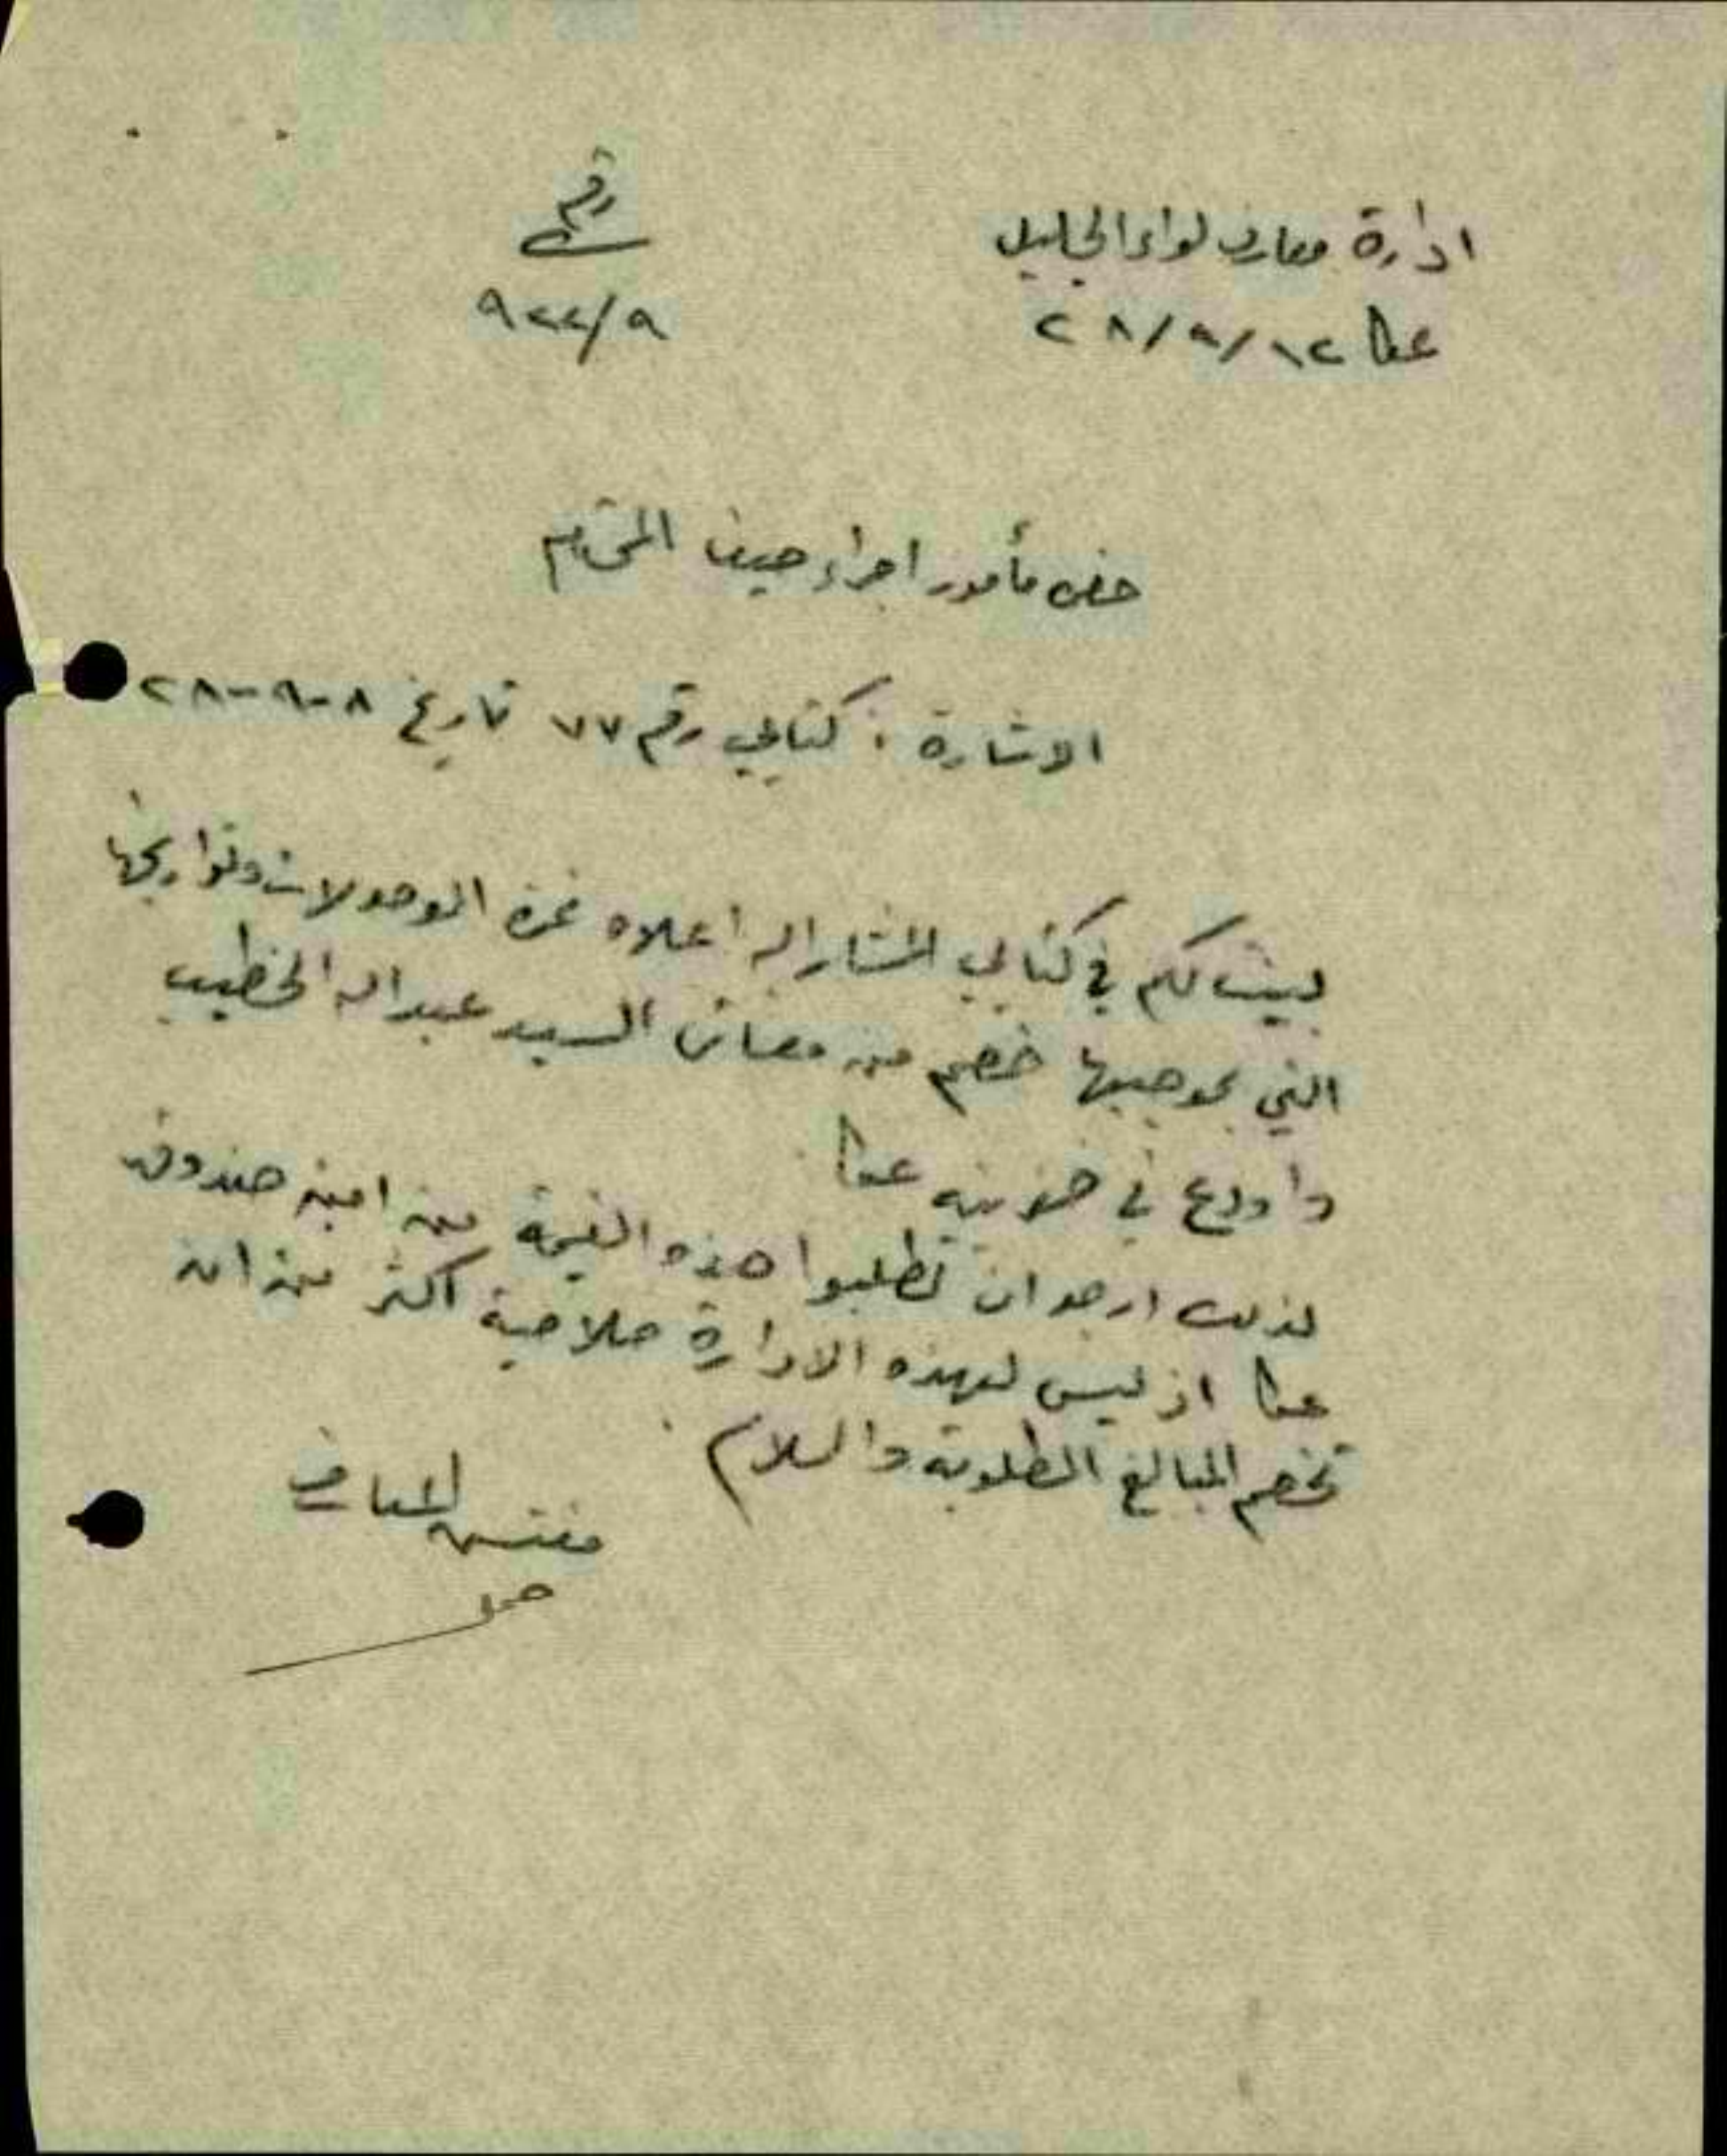 ادارة معارف لواء الجليل
عكا ١٢/٩/٢٨
رقم
٩٢٢/٩
حضرة مأمور اجراء حيفا المحترم
الاشارة : كتابي رقم ٧٧ تاريخ ٨-٩-٢٨
بينت لكم في كتابي المشار اليه اعلاه نمرة الوصولات وتواريخها
التي بموجبها خصم من معاش السيد عبد الله الخطيب
واودع في خزينة عكا
لذلك ارجو ان تطلبوا هذه القيمة من امين صندوق
عكا اذ ليس لهذه الادارة صلاحية اكثر من ان
تخصم المبالغ المطلوبة والسلام .
مفتش المعارف